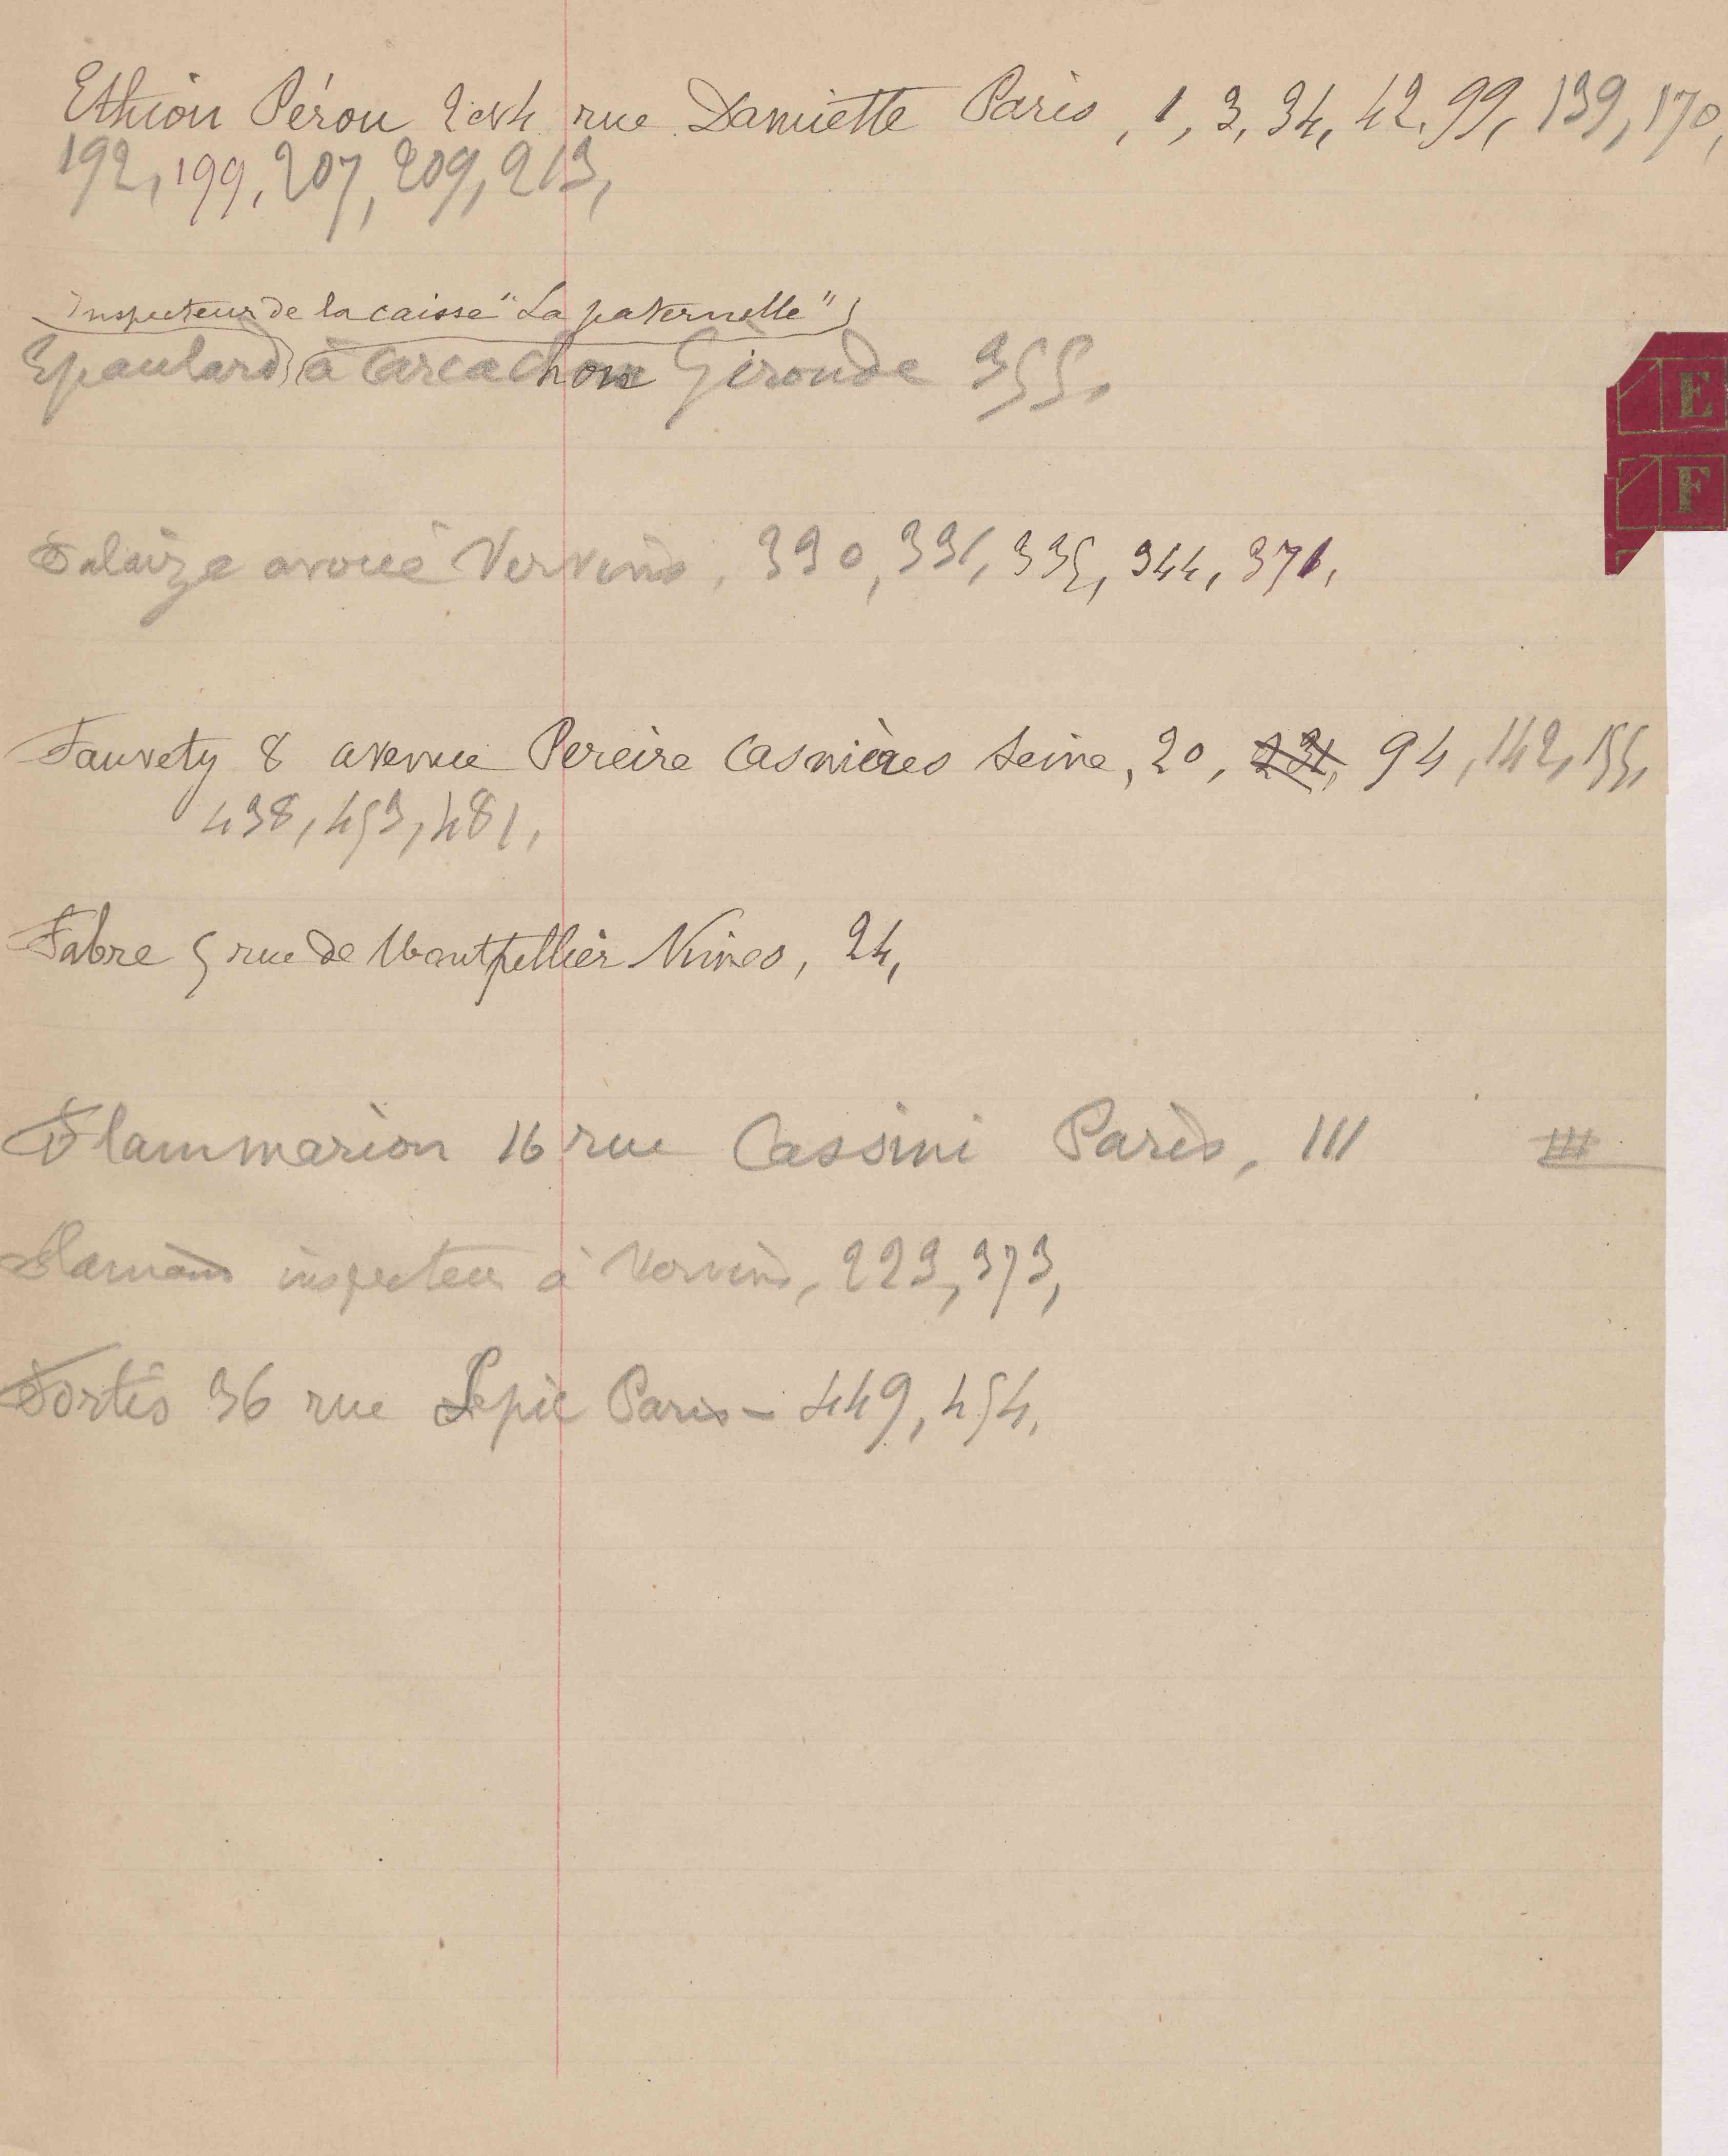 Ethiou Pérou 2 et 4 rue Damiette Paris, 1, 3, 34, 42, 99, 139, 170,
192, 199, 207, 209, 213,
Inspecteur de la caisse "La paternelle"
Epaulard à Arcachon Gironde 355.
E
F
Falaize avoué Vervins, 330, 331, 335, 344, 371,
Fauvety 8 avenue Pereire Asnières Seine, 20, 94, 142, 155,
438, 453, 481,
Fabre 5 rue de Montpellier Nimes, 24,
Flammarion 16 rue Cassini Paris, 111
inspecteur à Vervins, 223, 373,
Fortis 36 rue Lepic Paris - 449, 454,